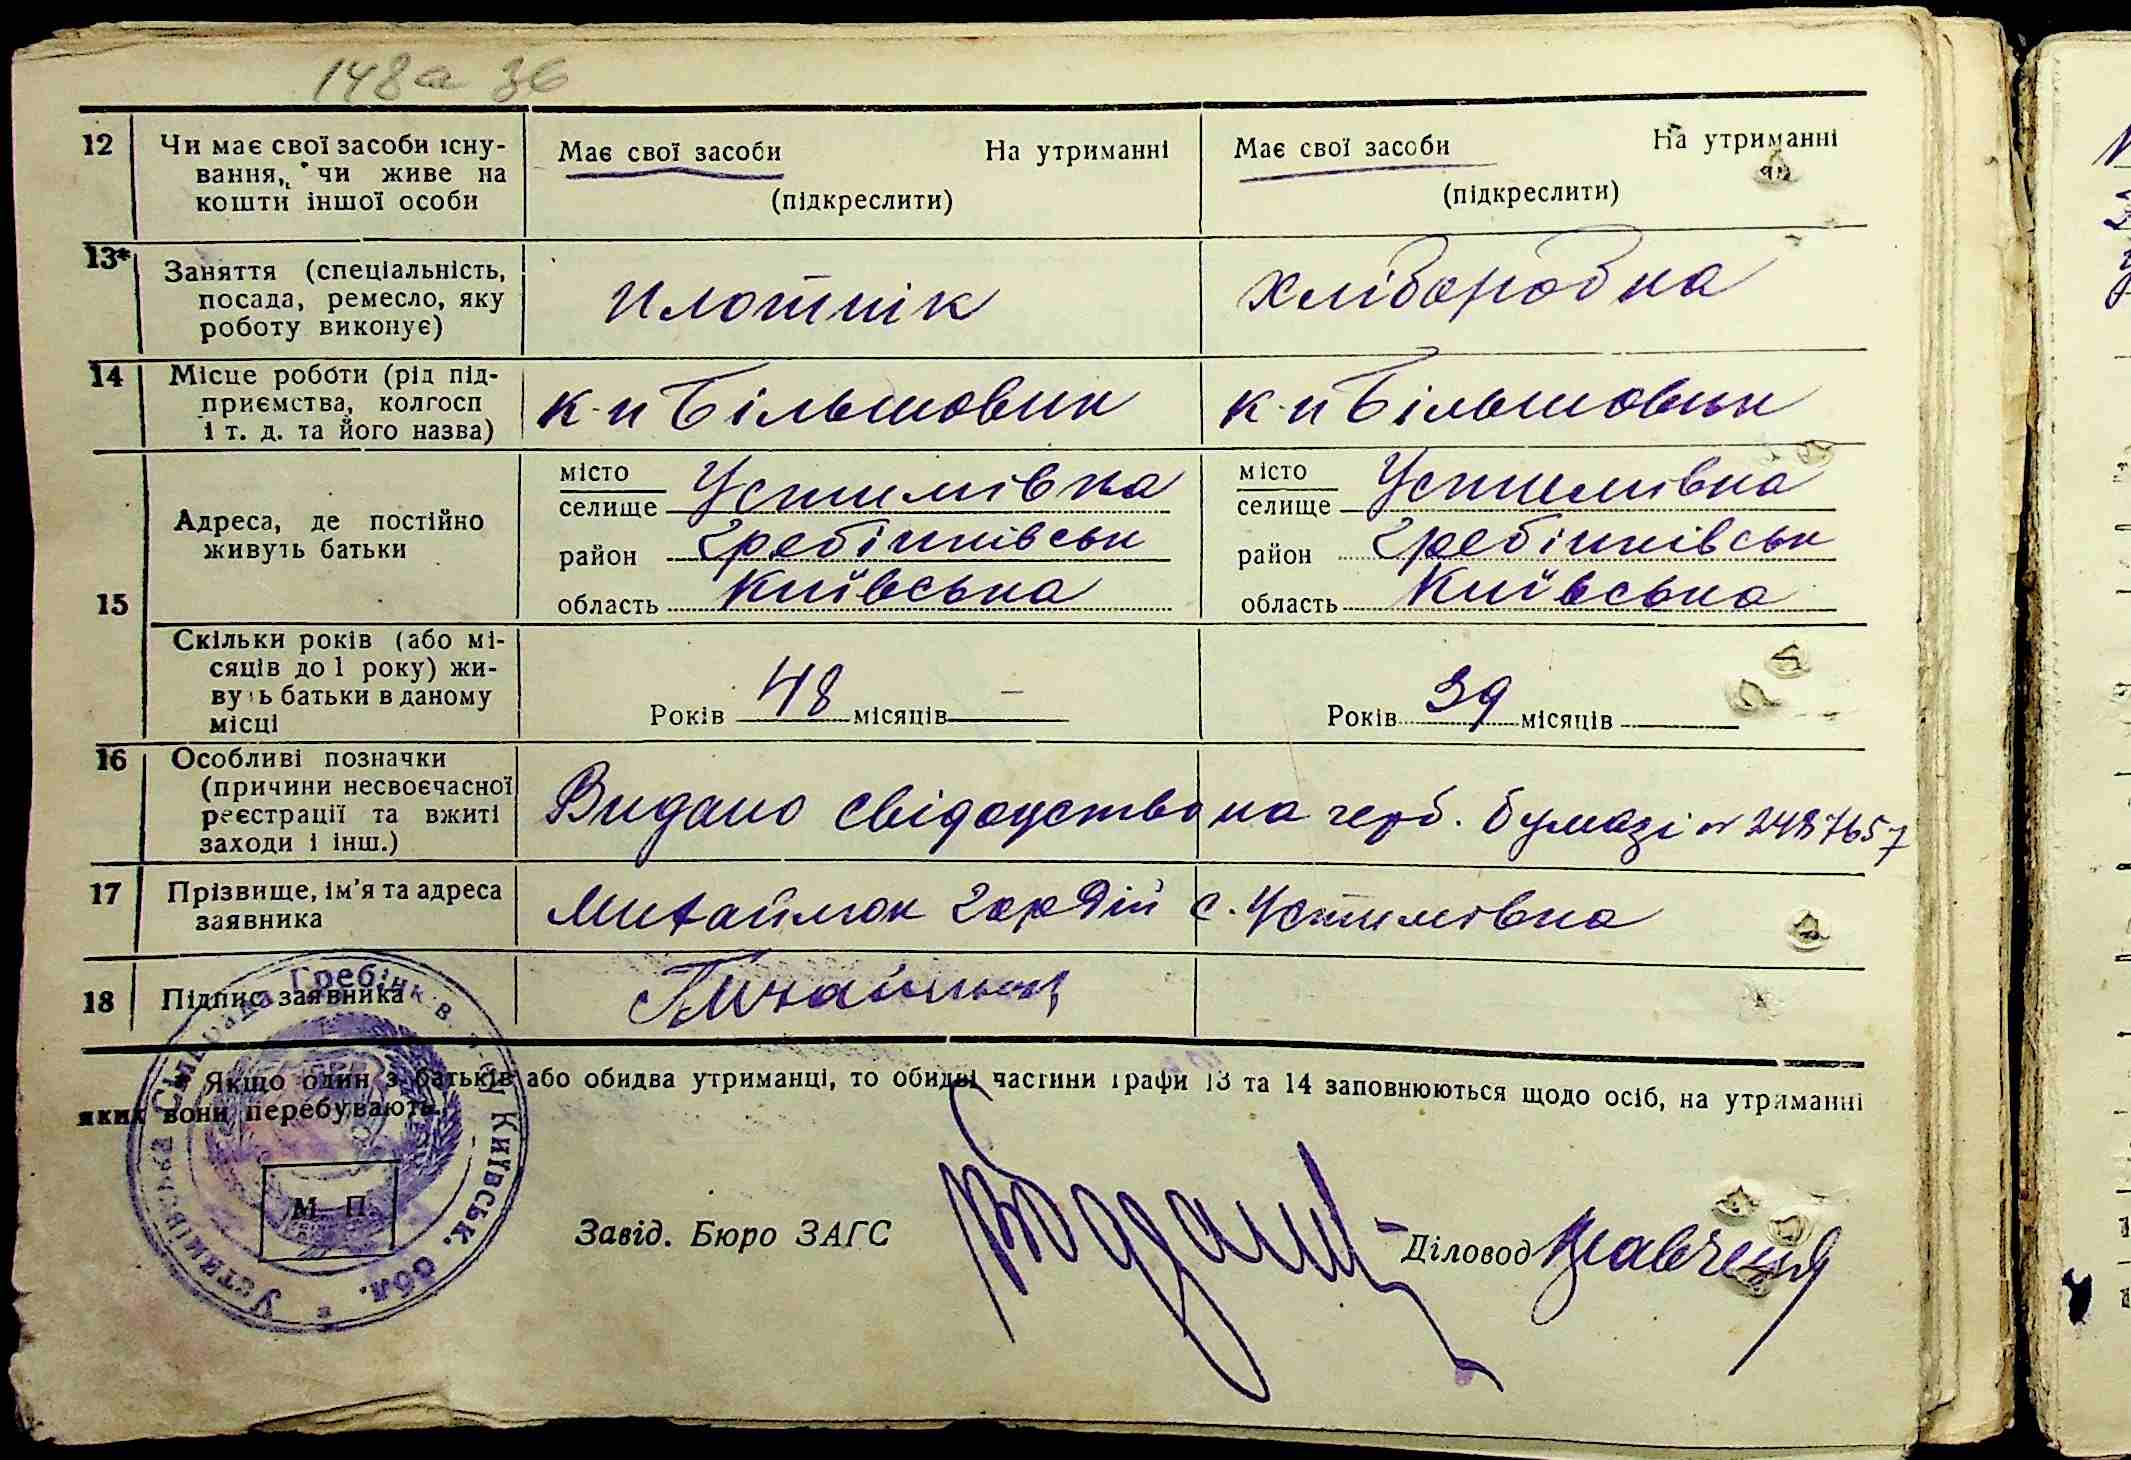 148а зв
12 Чи має свої засоби існу-
вання, чи живе на
кошти іншої особи
Має свої засоби На утриманні
(підкреслити)
Має свої засоби На утриманні
(підкреслити)
13* Заняття (спеціальність,
посада, ремесло, яку
роботу виконує)
плотнік
хліборобка
14 Місце роботи (рід під-
приємства, колгосп
і т. д. та його назва)
к-п Більшовик
к-п Більшовик
15 Адреса, де постійно
живуть батьки
місто
селище Устимівка
район Гребінківськ
область Київська
місто
селище Устимівка
район Гребінківськ
область Київська
Скільки років (або мі-
сяців до 1 року) жи-
вуть батьки в даному
місці
Років 48 місяців —
Років 39 місяців
16 Особливі позначки
(причини несвоєчасної
реєстрації та вжиті
заходи і інш.)
Видано свідоцтво на герб. бумазі № 2487657
17 Прізвище, ім'я та адреса
заявника
Михайлюк Гордій с. Устимівка
18 Підпис заявника
Якщо один з батьків або обидва утриманці, то обидві частини графи 13 та 14 заповнюються щодо осіб, на утриманні
яких вони перебувають.
М П
Завід. Бюро ЗАГС
Діловод Кравченко
Устимівська Сільрада Гребінків. р-ну Київськ. Обл.